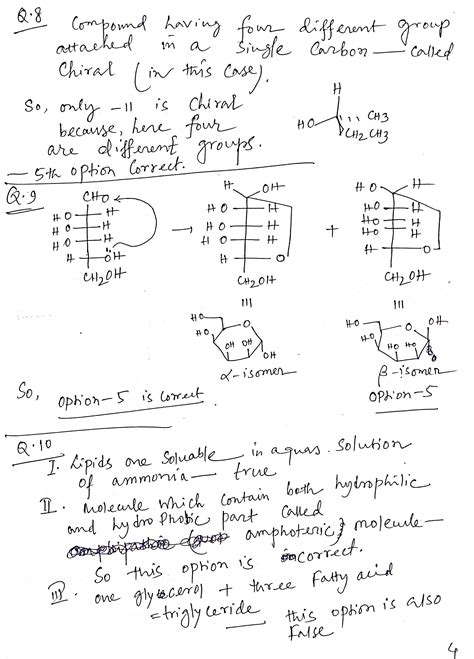 Q.8 Compound having four different group
attached in a single Carbon — called
Chiral (in this case).
So, only -II is chiral
because, here four
are different groups.
— 5th option Correct.
H
HO
CH3
CH2CH3
Q.9
CHO
HO H
HO H
HO H
H ÖH
CH2OH
→
H OH
HO H
HO H
HO H
H O
CH2OH
+
HO H
HO H
HO H
HO H
H O
CH2OH
III
III
HO O
HO OH OH OH
α-isomer
HO O OH
HO HO HO
β-isomer
So, option-5 is correct
Option-5
Q.10
I. Lipids are Soluable in aquas. Solution
of ammonia — true
II. Molecule which contain both hydrophilic
and hydrophobic part called
amphoteric molecule —
So this option is incorrect.
III. one glycerol + three Fatty acid
= triglyceride — this option is also
False
4